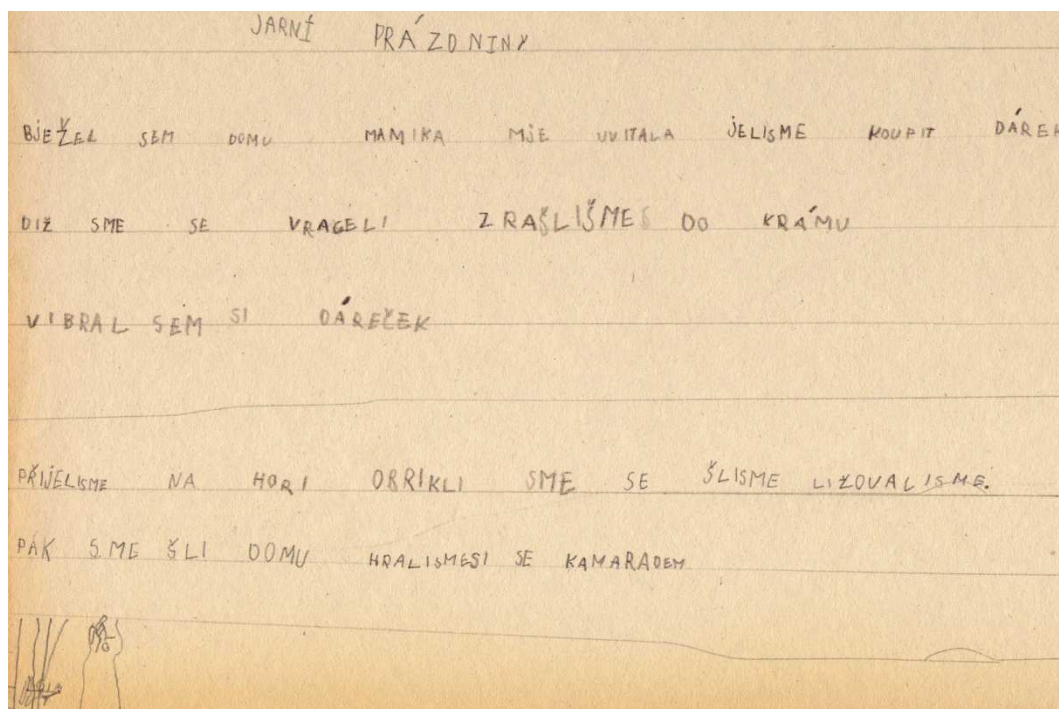 JARNÍ PRÁZDNINY
BJEŽEL SEM DOMU MAMIKA MJE UVITALA JELISME KOUPIT DÁREK
DIŽ SME SE VRACELI ZRAŠLIŠMES DO KRÁMU
VIBRAL SEM SI DÁREČEK
PŘIJELISME NA HORI OBRIKLI SME SE ŠLISME LIŽOVALISME.
PAK SME ŠLI DOMU HRALISMESI SE KAMARADEM